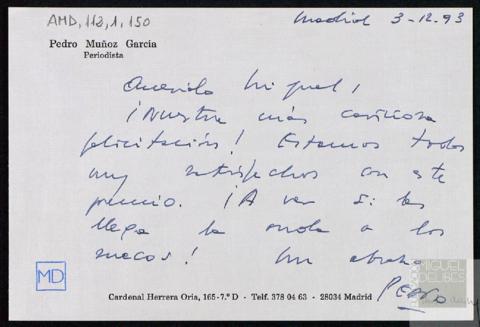 AMD,112,1,150
Madrid 3-12-93
Pedro Muñoz García
Periodista
Querido Miguel,
¡Nuestra más cariñosa
felicitación! Estamos todos
muy satisfechos con este
premio. ¡A ver si les
llega la onda a los
suecos! Un abrazo
Pedro
MD
Cardenal Herrera Oria, 165-7.º D - Telf. 378 04 63 - 28034 Madrid
MIGUEL
DELIBES